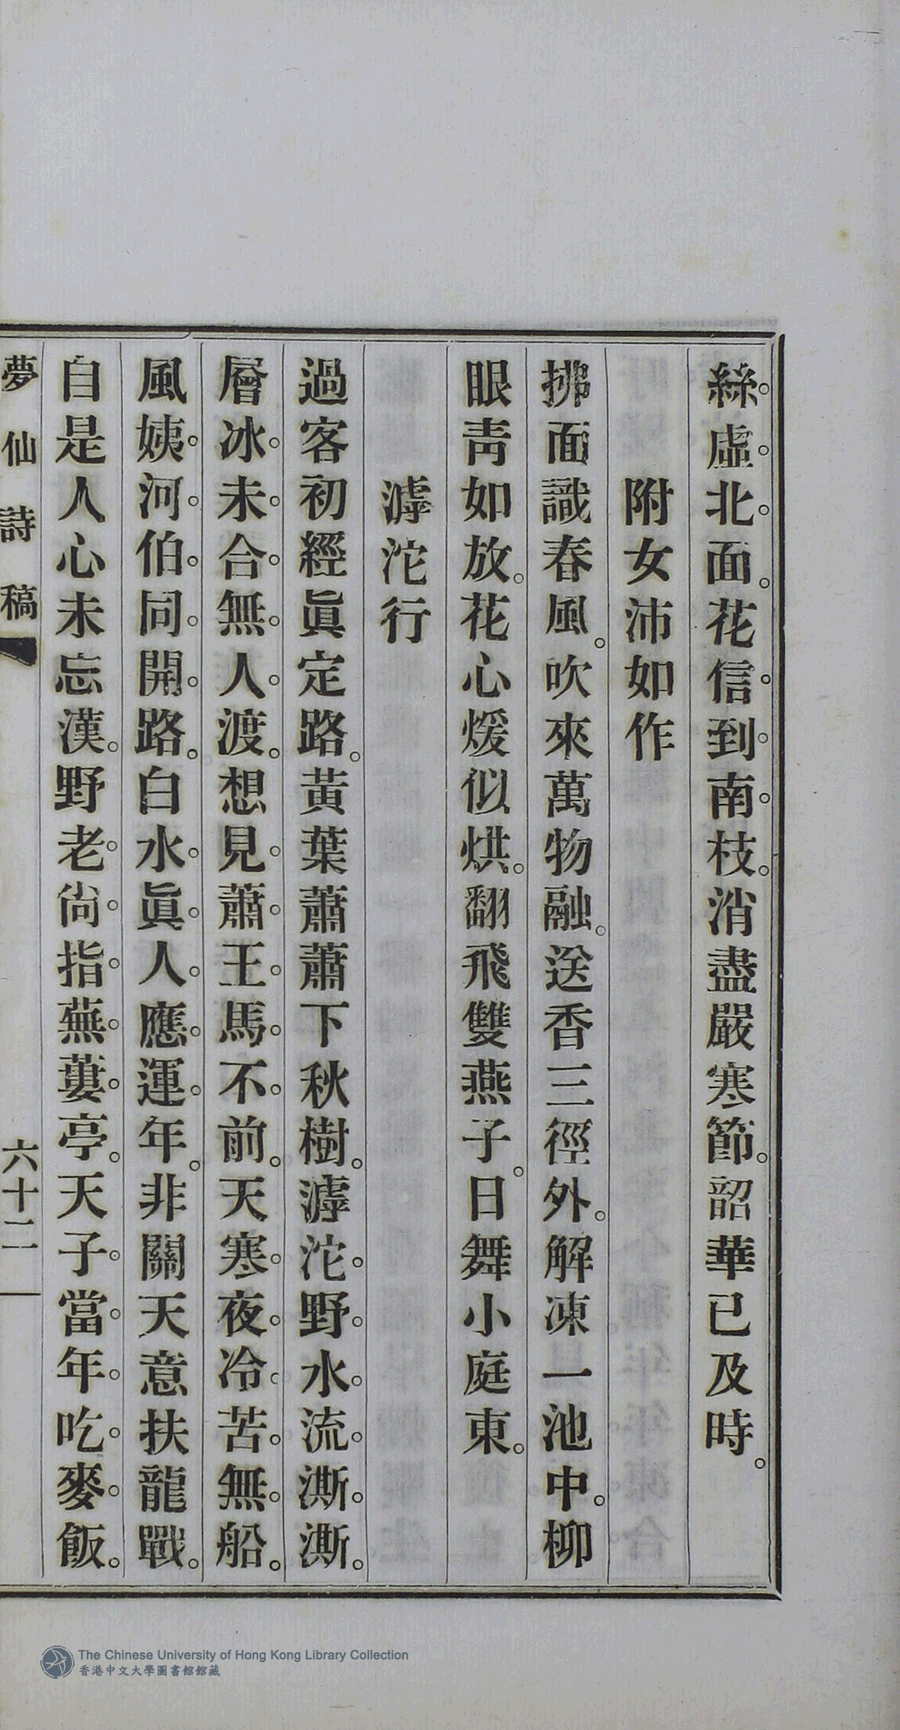 絲虛北面。花信到南枝。消盡嚴寒節。韶華已及時。
附女沛如作
拂面識春風。吹來萬物融。送香三徑外。解凍一池中。柳
眼靑如放。花心煖似烘。翻飛雙燕子。日舞小庭東。
滹沱行
過客初經眞定路。黃葉蕭蕭下秋樹。滹沱野水流澌澌。
層冰未合無人渡。想見蕭王馬不前。天寒夜冷苦無船。
風姨河伯同開路。白水眞人應運年。非關天意扶龍戰。
自是人心未忘漢。野老尙指蕪蔞亭。天子當年吃麥飯。
夢仙詩稿
六十二
The Chinese University of Hong Kong Library Collection
香港中文大學圖書館館藏